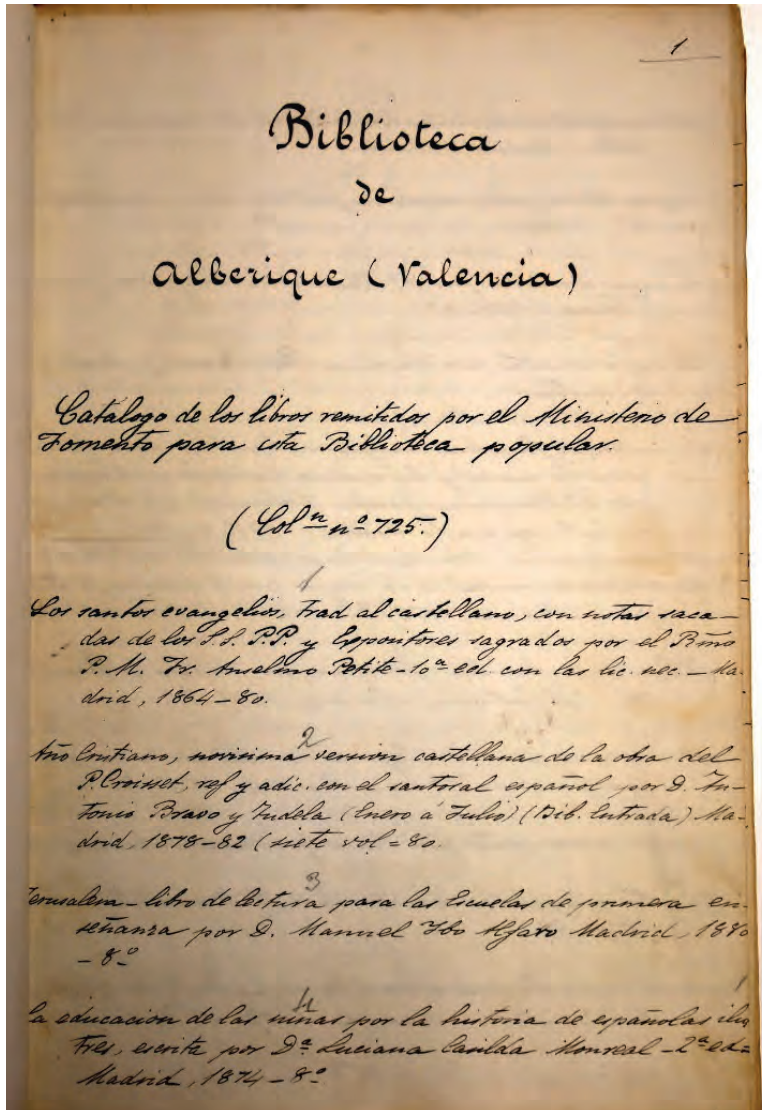 1
Biblioteca
de
Alberique (Valencia)
Catálogo de los libros remitidos por el Ministerio de
Fomento para esta Biblioteca popular.
(Colⁿ nº 725.)
1
Los santos evangelios, Trad al castellano, con notas saca-
das de los S.S. P.P. y Expositores sagrados por el Rmo
P. M. Fr. Anselmo Petite - 10ª ed. con las lic. nec. - Ma-
drid, 1864 - 8o.
2
Año Cristiano, novisima version castellana de la obra del
P. Croisset, ref y adic. con el santoral español por D. An-
tonio Bravo y Tudela (Enero á Julio) (Bib. Entrada) Ma-
drid, 1878-82 (siete vol = 8o.
3
Jerusalem - libro de lectura para las Escuelas de primera en-
señanza por D. Manuel Ibo Alfaro Madrid, 1880
- 8º
4
La educacion de las niñas por la historia de españolas ilus
tres, escrita por Dª Luciana Casilda Monreal - 2ª ed =
Madrid, 1874 - 8º